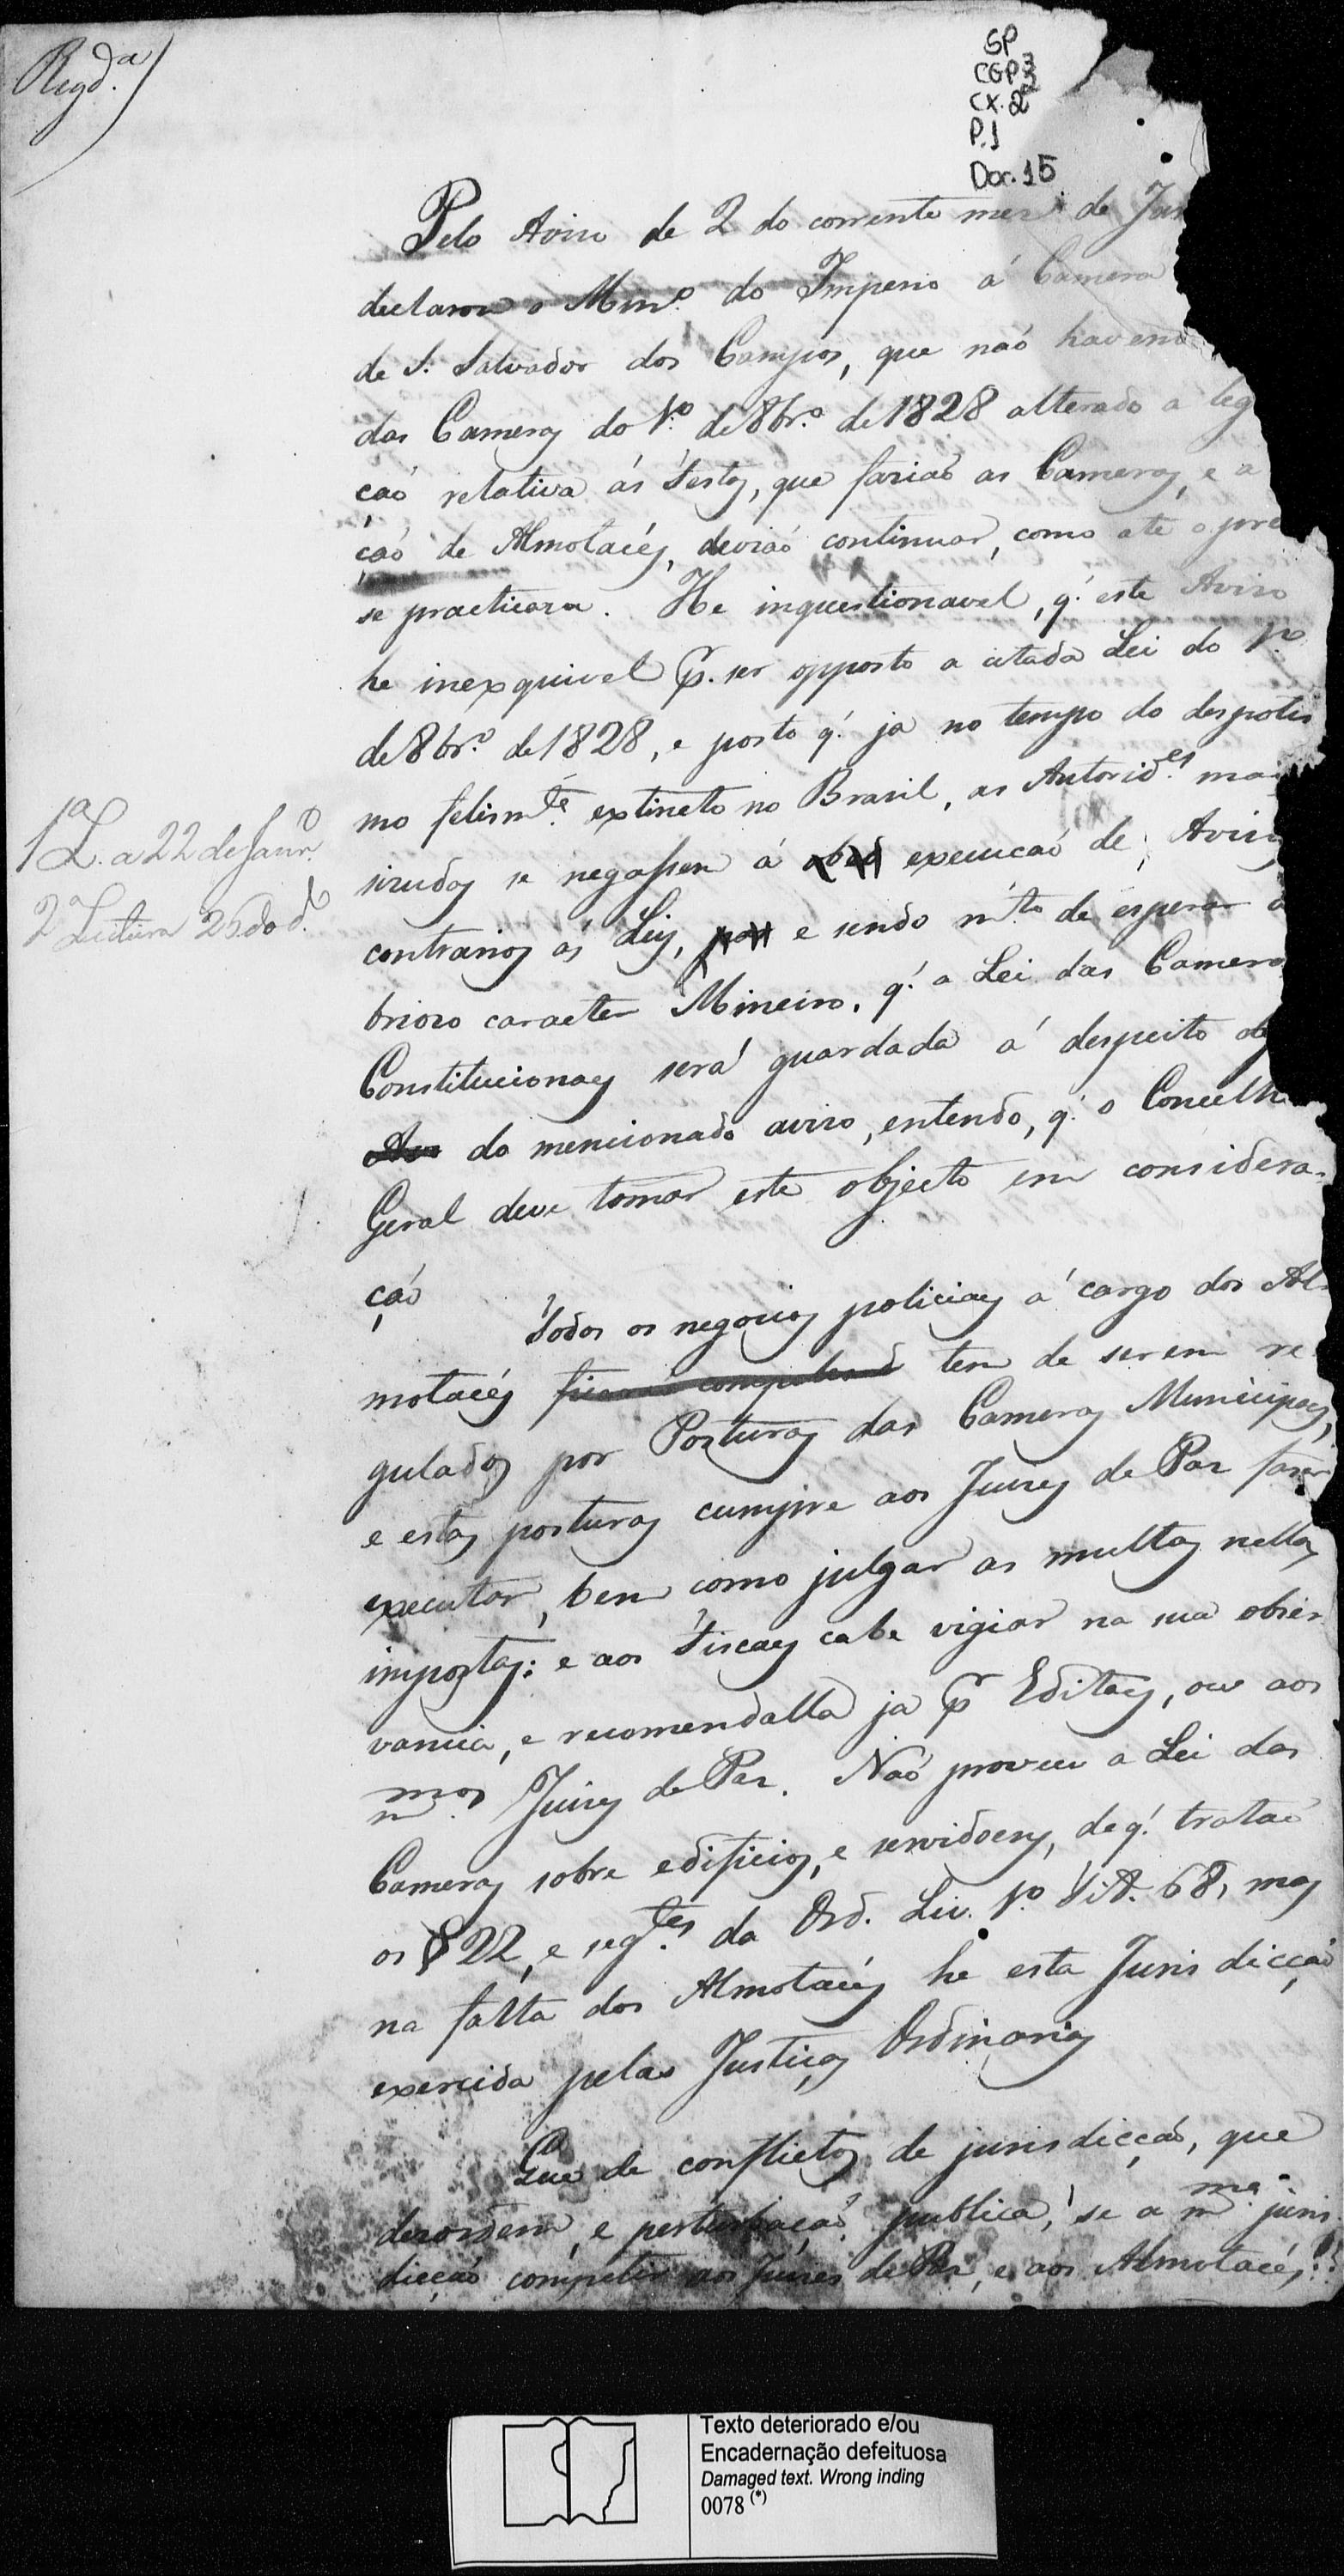 Regd.ª)
SP
CGP3
CX. 2
P. 1
Doc. 15
Pelo Aviso de 2 do corrente mez de
declarou o Min.º do Imperio á Camera
de S. Salvador dos Campos, que naõ havend
das Cameras do 1.º de 8br.º de 1828 alterado a leg
çaõ relativa ás Festas, que faziaõ as Cameras, e a
çaõ de Almotacés, deviaõ continuar, como até o pre
se practicara. He inquestionavel, q.' este Aviso
he inexquivel p.r ser opposto a citada Lei do 1.º
de 8br.º de 1828, e posto q.' ja no tempo do despotis
mo felism.te extincto no Brasil, as Autorid.es mais
sizudas se negassem á execuçaõ de Avisos
contrarios ás Leis, e sendo m.to de esperar do
brioso caracter Mineiro, q.' a Lei das Camera
Constitucionaes será guardada á despeito de
do mencionado aviso, entendo, q.' o Concelh
Geral deve tomar este objecto em considera-
çáo
Todos os negocios policiaes á cargo dos Al-
motacés ficaraõ tem de serem re
gulados por Posturas das Cameras Municipaes,
e estas posturas cumpre aos Juizes de Paz fazer
executar, bem como julgar as multas nellas
impostas: e aos Fiscaes cabe vigiar na sua obser
vancia, e recomendalla ja p.r Editaes, ou aos
m.mos Juizes de Paz. Naõ proveu a Lei das
Cameras sobre edificios, e servidoens, de q.' trataõ
os § 22, e seg.tes da Ord. Liv. 1.º Tit. 68, mas
na falta dos Almotacés he esta Jurisdicçaõ
exercida pelas Justiças Ordinarias
Que de conflictos de jurisdicçaõ, que
dezordem, e perturbaçaõ publica, se a m.ma juris
dicçaõ competir aos Juizes de Paz, e aos Almotacés!
1ª L. a 22 de Janr.º
2 Leitura 25 do d.º
Texto deteriorado e/ou
Encadernação defeituosa
Damaged text. Wrong inding
0078 (*)